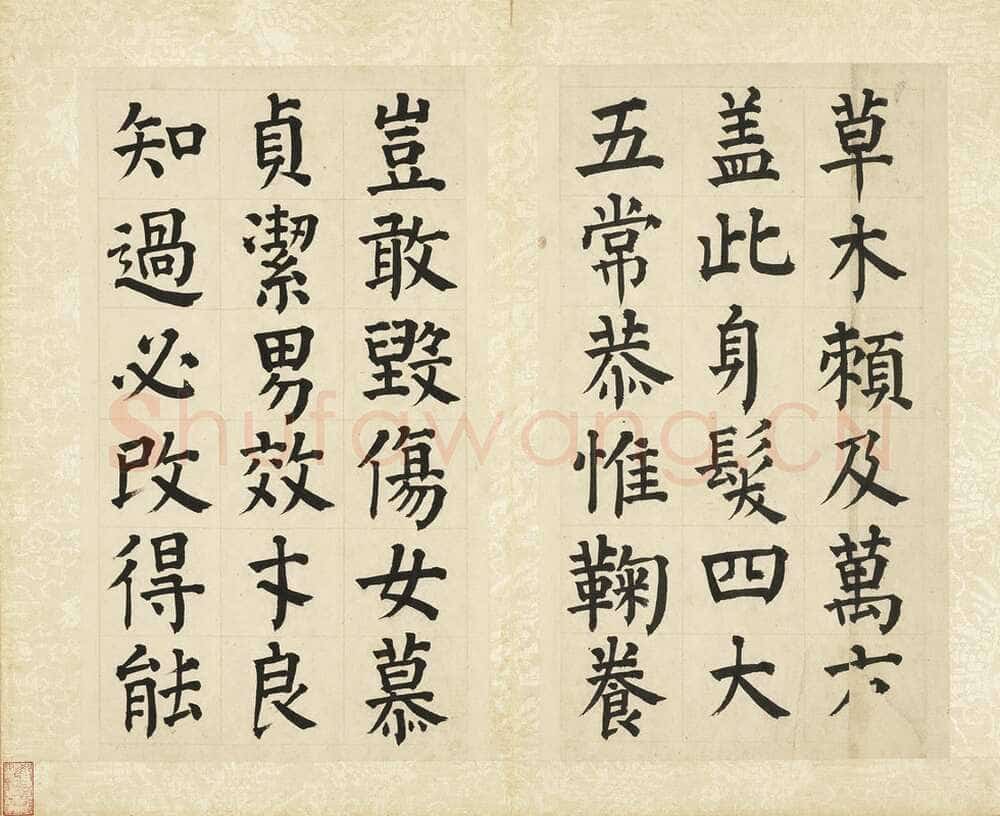 草木頼及萬方
盖此身髮四大
五常恭惟鞠養
豈敢毁傷女慕
貞潔男效才良
知過必改得能
Shufawang.CN